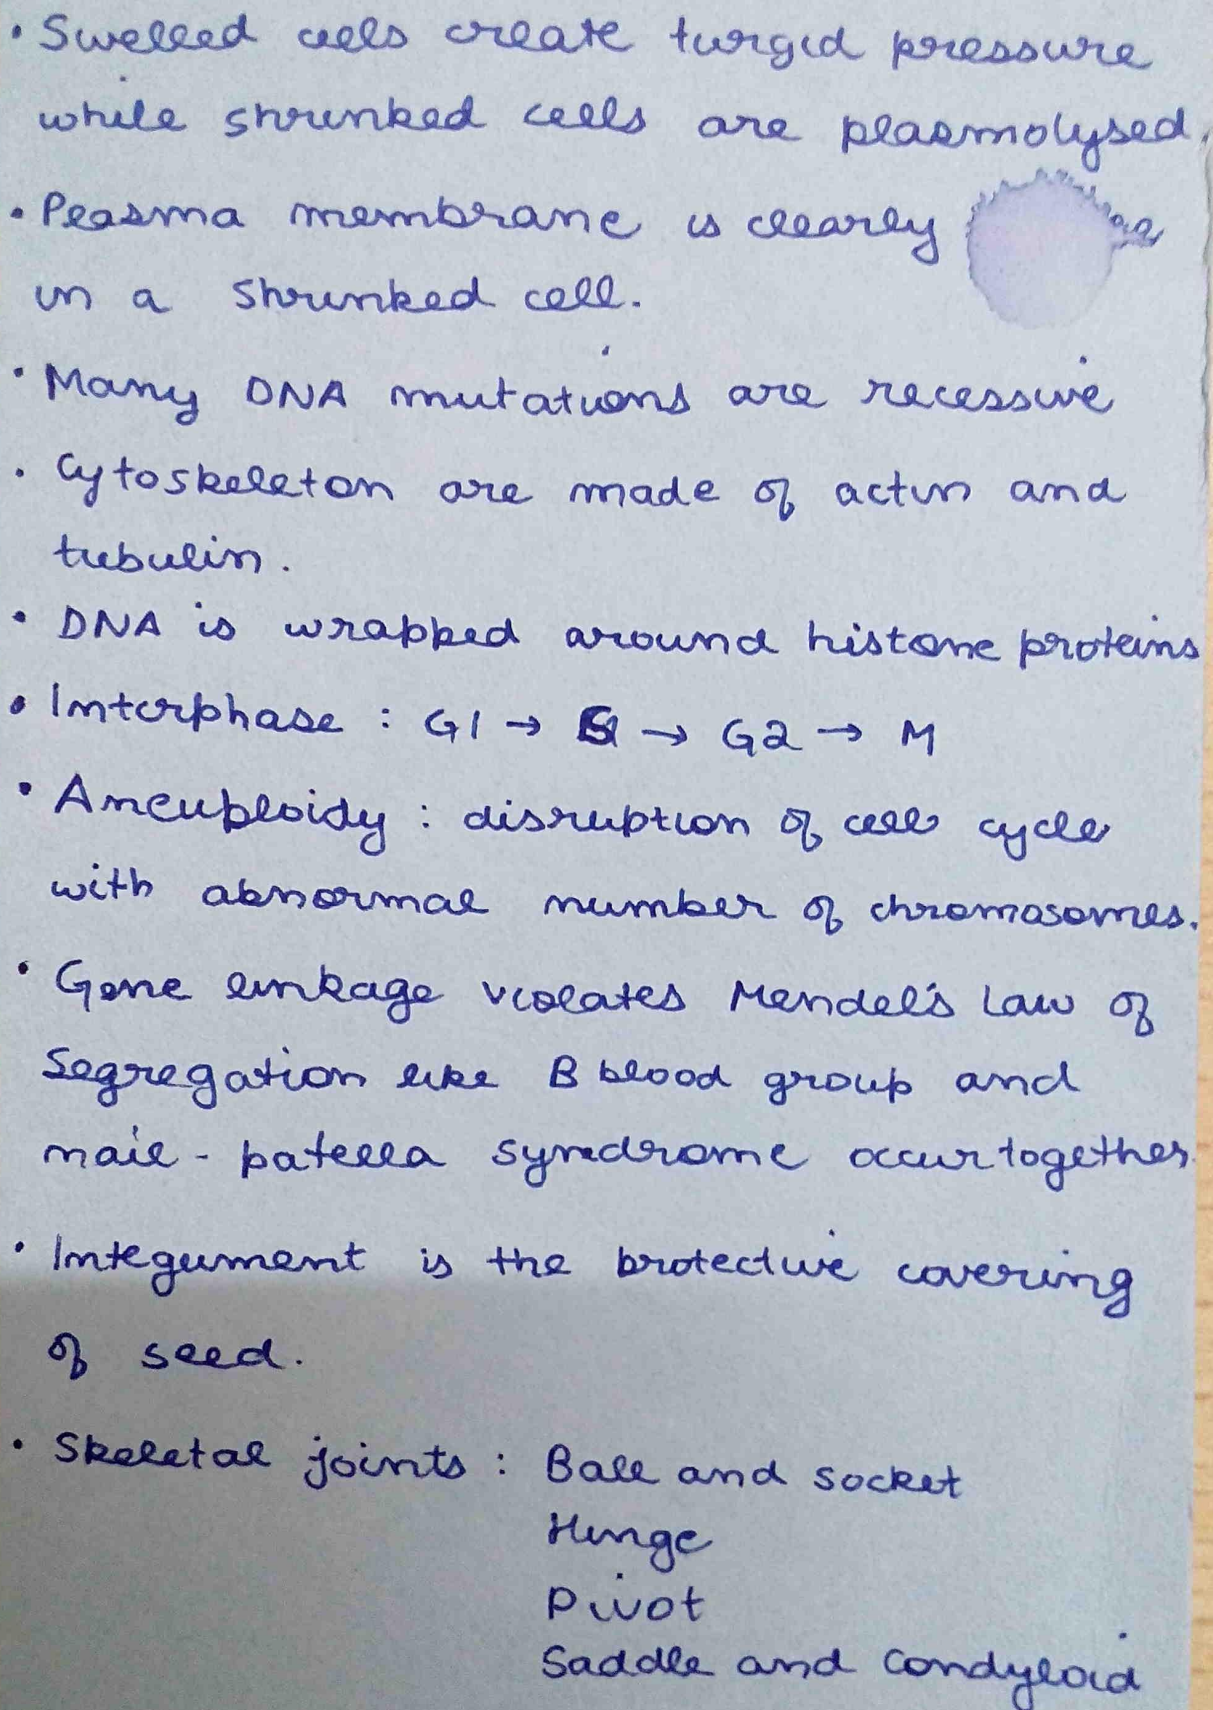 • Swelled cells create turgid pressure
while shrunked cells are plasmolysed.
• Plasma membrane is clearly
in a shrunked cell.
• Many DNA mutations are recessive
• Cytoskeleton are made of actin and
tubulin.
• DNA is wrapped around histone proteins
• Interphase : G1 → → G2 → M
• Aneuploidy : disruption of cell cycle
with abnormal number of chromosomes.
• Gene linkage violates Mendel's Law of
Segregation like B blood group and
nail - patella syndrome occur together.
• Integument is the protective covering
of seed.
• Skeletal joints : Ball and socket
Hinge
Pivot
Saddle and Condyloid